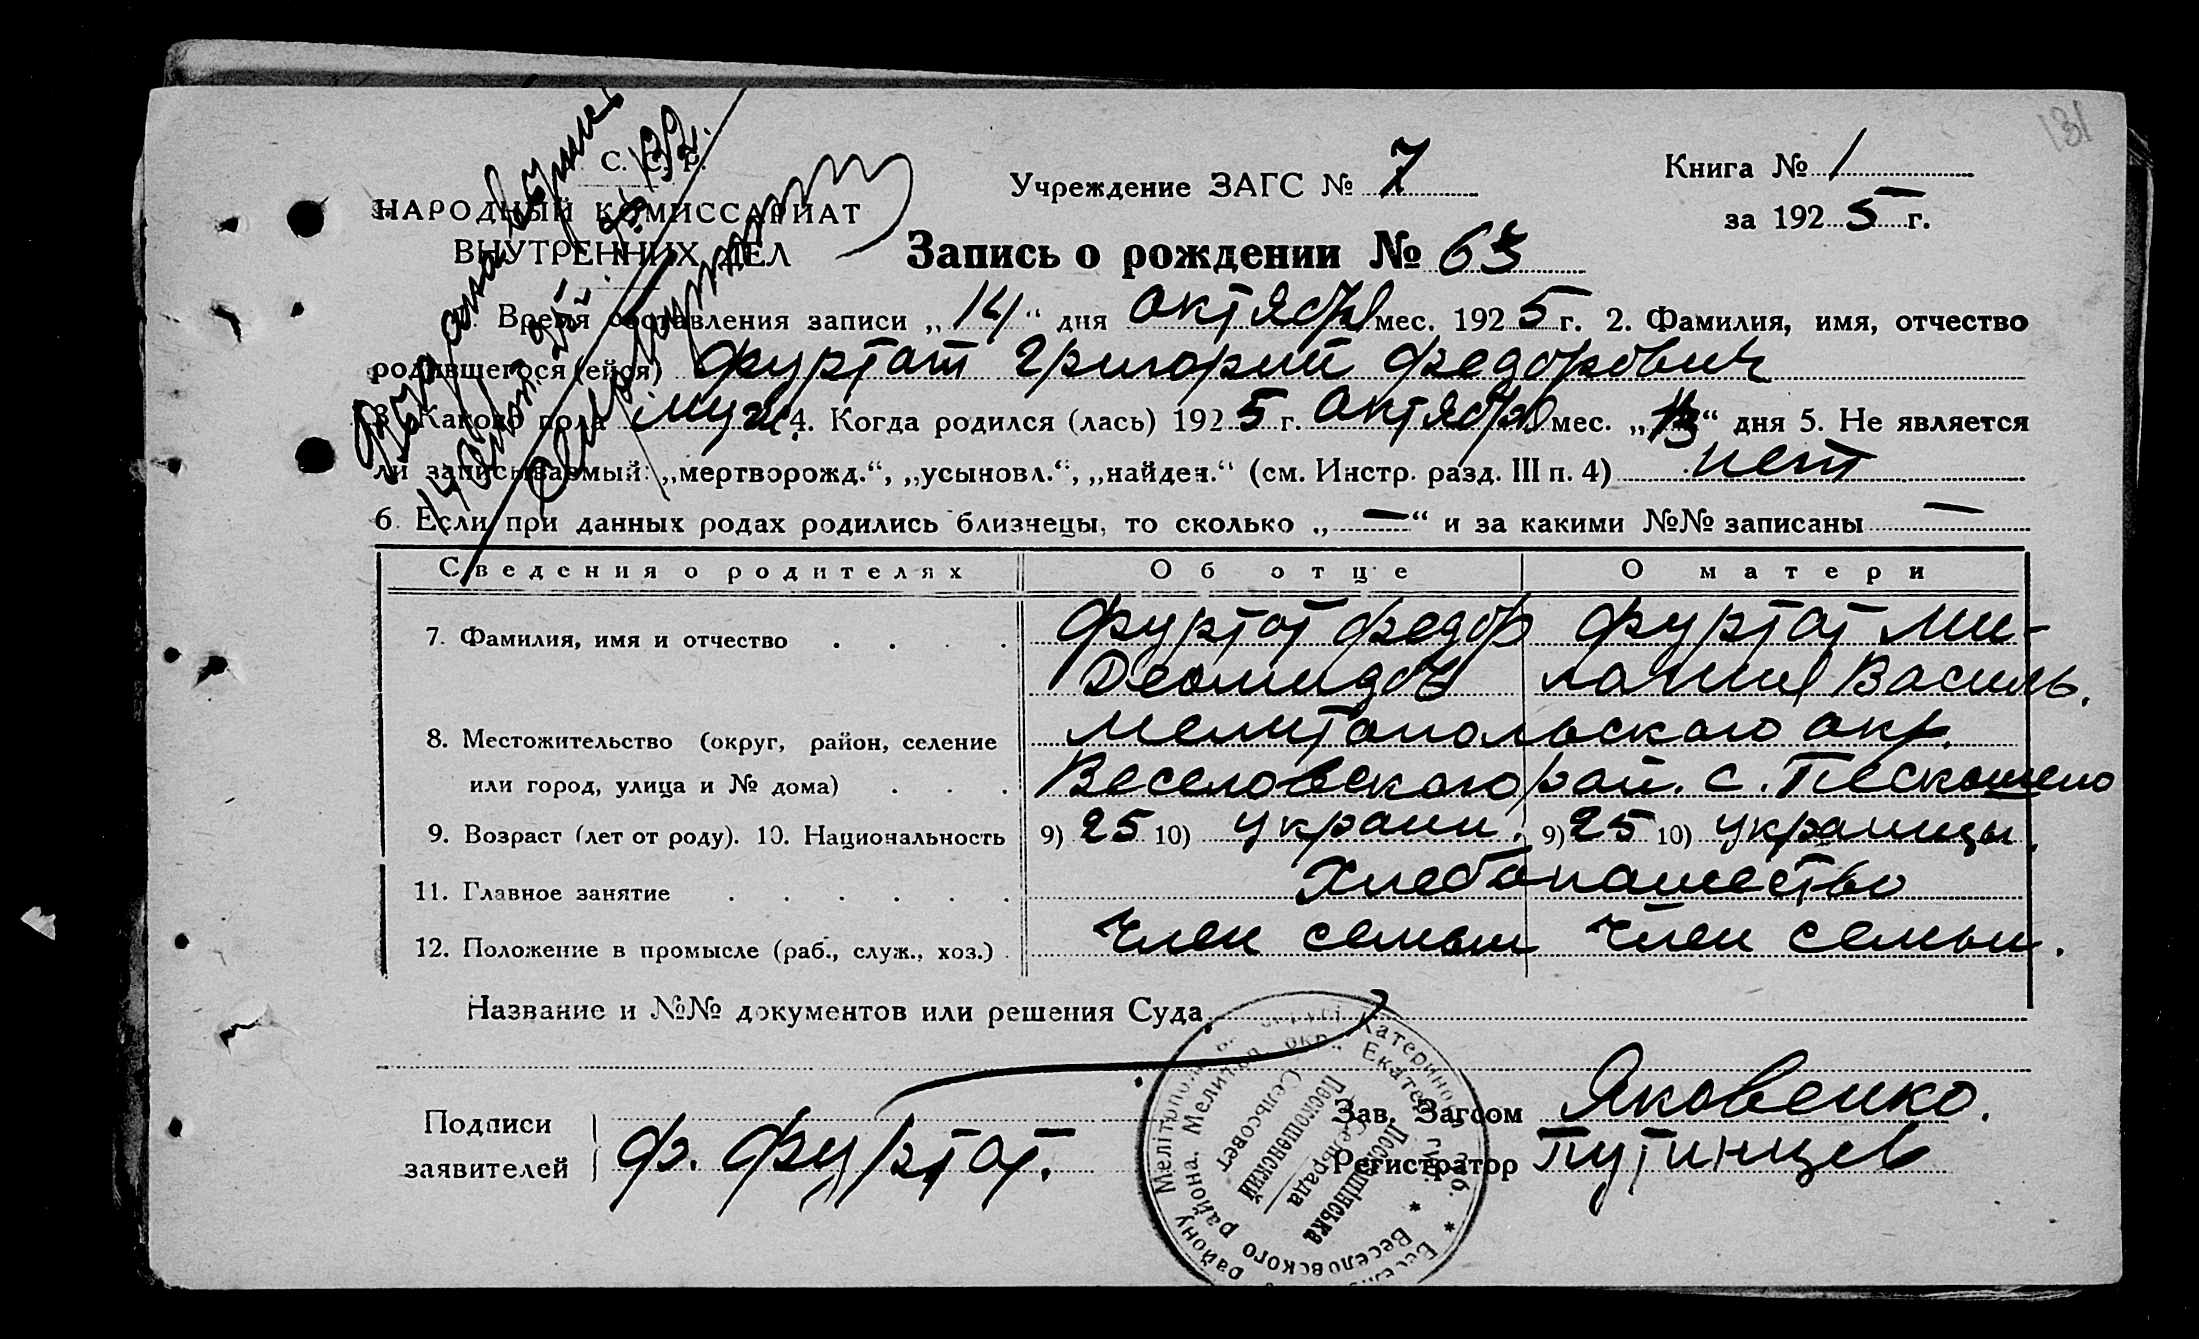 131
С. С. Р.
НАРОДНЫЙ КОМИССАРИАТ
ВНУТРЕННИХ ДЕЛ
Учреждение ЗАГС № 7
Книга № 1
за 1925 г.
Запись о рождении № 63
1. Время составления записи „14“ дня октября мес. 1925 г. 2. Фамилия, имя, отчество
родившегося (ейся) Фуртат Григорий Федорович
3. Какого пола муж. 4. Когда родился (лась) 1925 г. октября мес. „13“ дня 5. Не является
ли записываемый: „мертворожд.“, „усыновл.“, „найден.“ (см. Инстр. разд. III п. 4) нет
6. Если при данных родах родились близнецы, то сколько „—“ и за какими №№ записаны —
Сведения о родителях Об отце О матери
7. Фамилия, имя и отчество . . . . Фуртат Федор Фуртат Ми-
Деомидов лания Василь.
8. Местожительство (округ, район, селение Мелитопольского окр.
или город, улица и № дома) . . . Веселовского рай. с. Пескошено
9. Возраст (лет от роду). 10. Национальность 9) 25 10) украин. 9) 25 10) украинцы.
11. Главное занятие . . . . . . Хлебопашество
12. Положение в промысле (раб., служ., хоз.) . Член семьи Член семьи.
Название и №№ документов или решения Суда
Подписи
заявителей
Ф. Фуртат.
Зав. Загсом Яковенко.
Регистратор Путинцев
Песькошинська
Сельрада
Пескошинский
Сельсовет